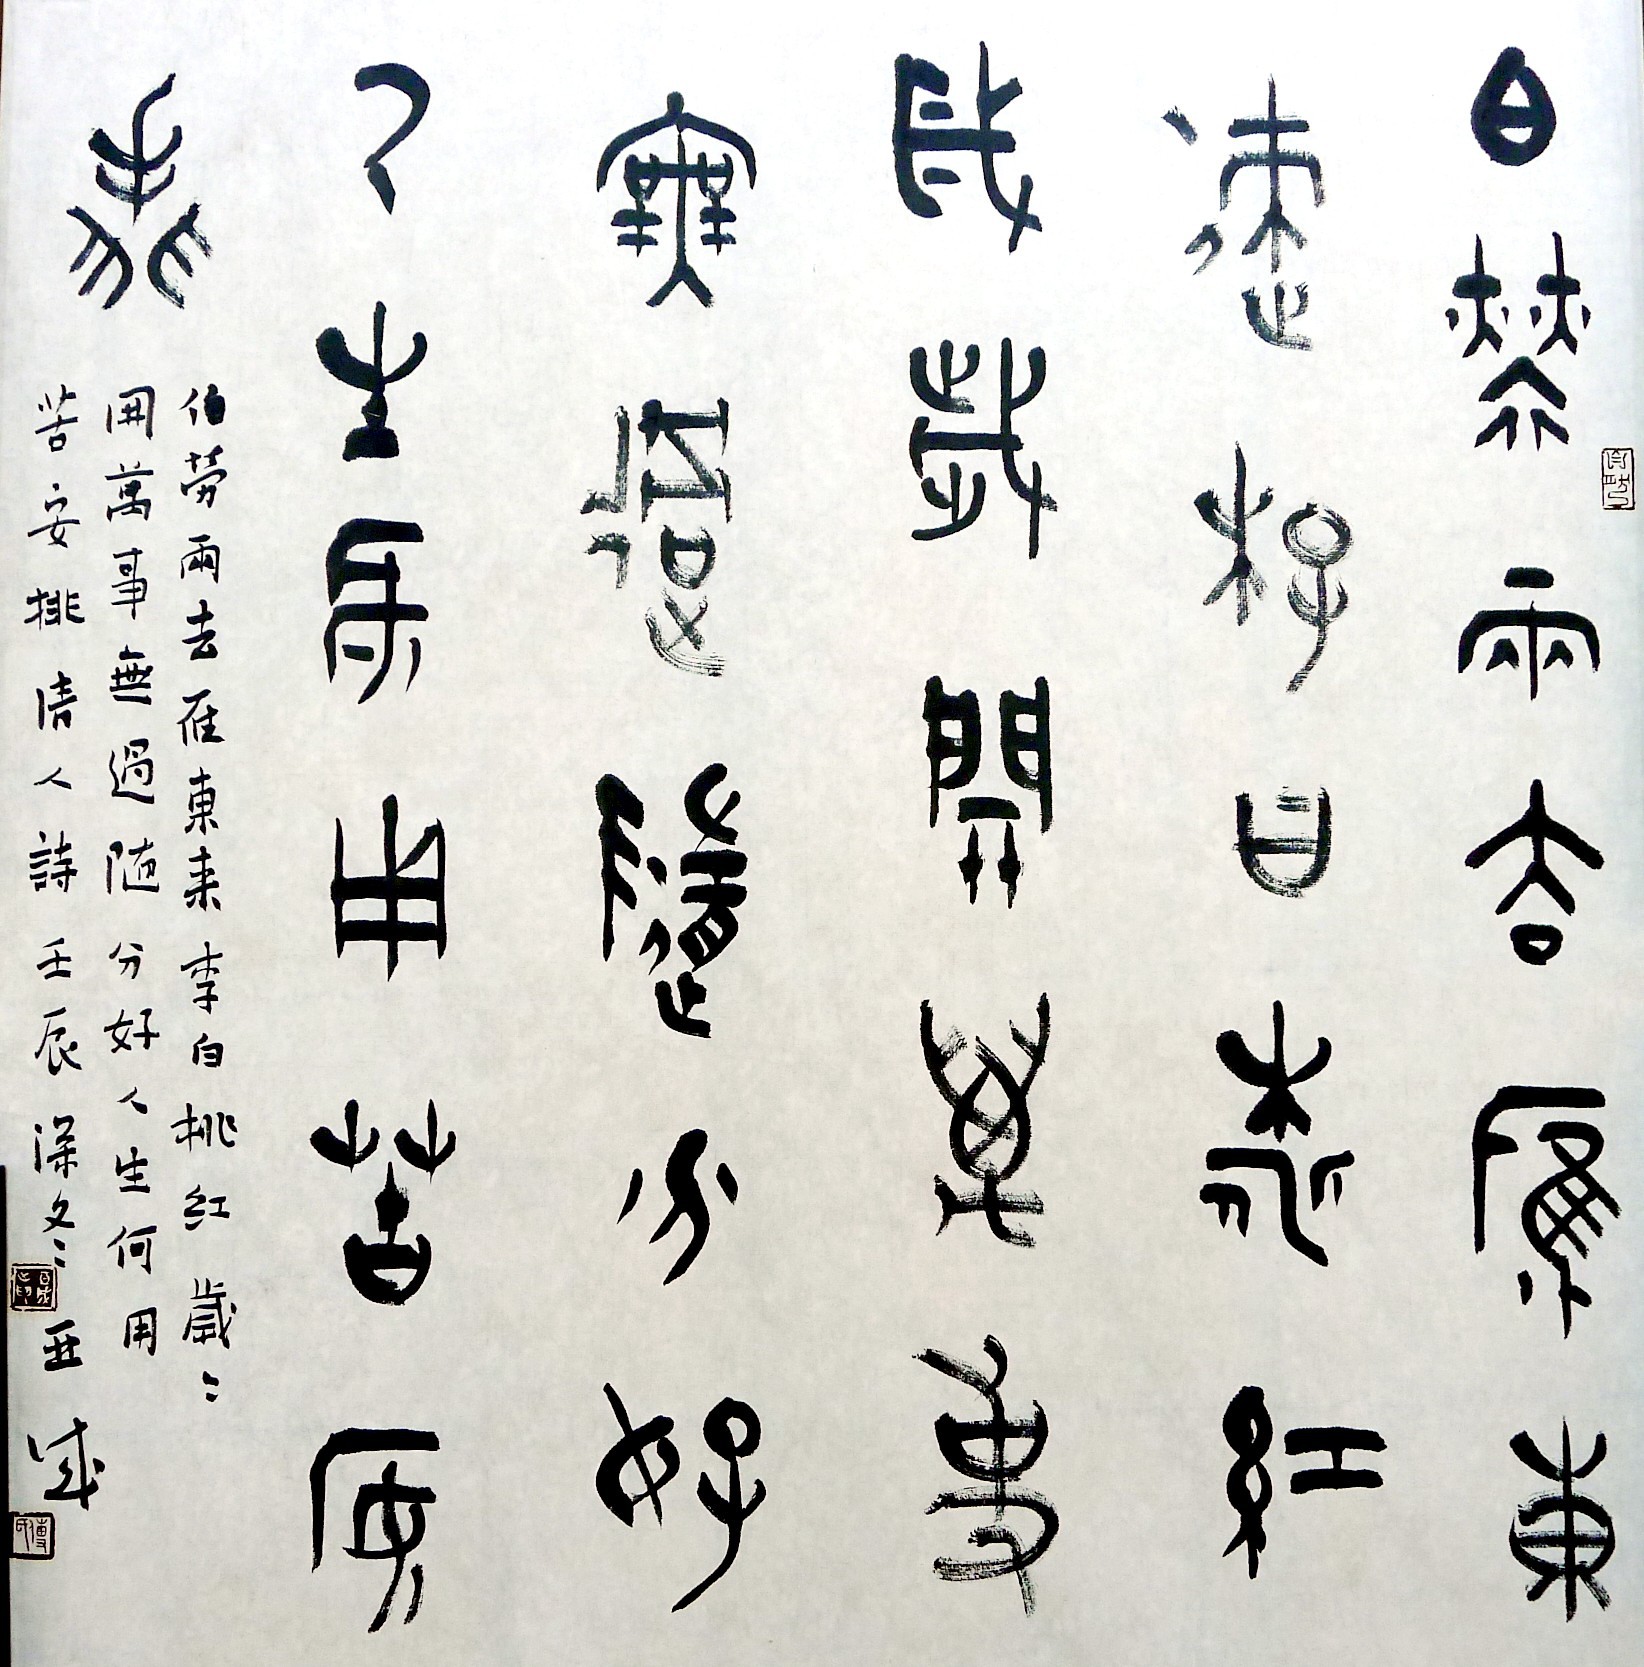 白勞雨去雁東
來李白桃紅
歲歲開萬事
無過隨分好
人生何用苦安
排
伯勞雨去雁東来李白桃紅歲〻
開萬事無過随分好人生何用
苦安排清人詩壬辰深冬亞成